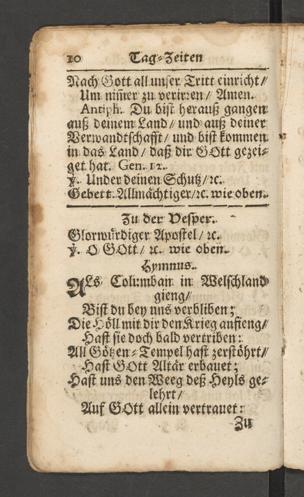 10 Tag-Zeiten
Nach Gott all unser Tritt einricht/
Um nim̄er zu verirren / Amen.
Antiph. Du bist herauß gangen
auß deinem Land / und auß deiner
Verwandtschafft / und bist kommen
in das Land / daß dir GOtt gezei-
get hat. Gen. 12.
℣. Under deinen Schutz /ꝛc.
Gebett. Allmächtiger/ꝛc. wie oben.
Zu der Vesper.
Glorwürdiger Apostel / ꝛc.
℣. O GOtt / ꝛc. wie oben.
Hymnus.
ALs Columban in Welschland
gieng/
Bist du bey uns verbliben;
Die Höll mit dir den Krieg anfieng/
Hast sie doch bald vertriben:
All Götzen-Tempel hast zerstöhrt/
Hast GOtt Altär erbauet;
Hast uns den Weeg deß Heyls ge-
lehrt/
Auf GOtt allein vertrauet:
Zu